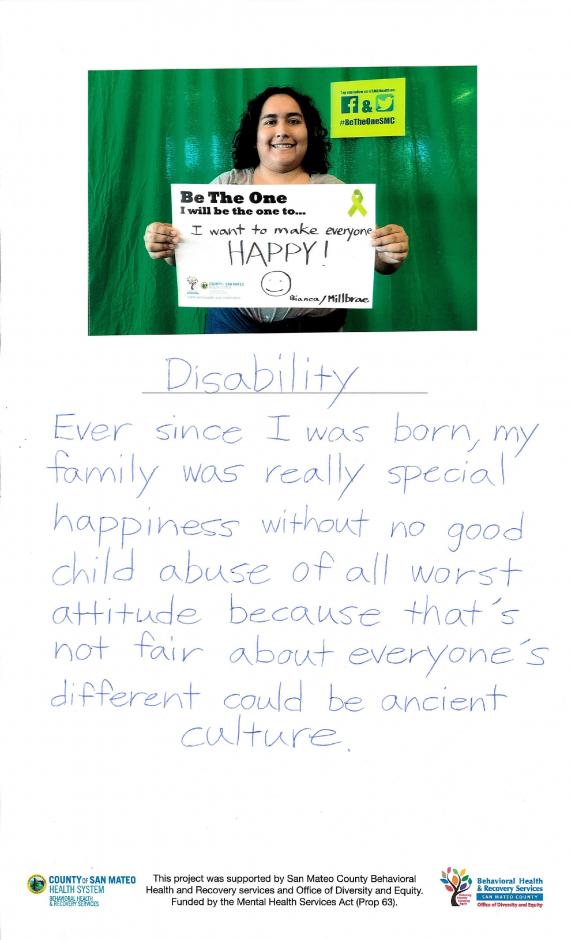 f & 
#BeTheOneSMC
Be The One
I will be the one to...
I want to make everyone
HAPPY!
COUNTY OF SAN MATEO
Bianca/Millbrae
Disability
Ever since I was born, my
family was really special
happiness without no good
child abuse of all worst
attitude because that's
not fair about everyone's
different could be ancient
culture.
COUNTY OF SAN MATEO
HEALTH SYSTEM
BEHAVIORAL HEALTH
& RECOVERY SERVICES
This project was supported by San Mateo County Behavioral
Health and Recovery services and Office of Diversity and Equity.
Funded by the Mental Health Services Act (Prop 63).
Behavioral Health
& Recovery Services
SAN MATEO COUNTY
Office of Diversity and Equity